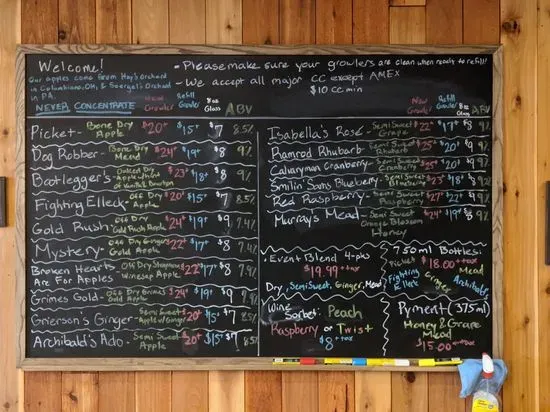 Welcome!
Our apples come from Hay's Orchard
in Columbiana, OH, & Soergel's Orchard
in PA.
NEVER CONCENTRATE
- Please make sure your growlers are clean when ready to refill!
- We accept all major CC except AMEX
$10 CC min
New Growler Refill Growler 8oz Glass ABV
Picket - Bone Dry Apple $20+ $15+ $7 8.5%
Dog Robber - Bone Dry Mead $24+ $19+ $8 9%
Bootlegger's - Apple $23+ $18+ $8 9%
Fighting Elleck - Off Dry Apple $20+ $15+ $7 8.5%
Gold Rush - Off Dry Gold Rush Apple $24+ $19+ $9 7.4%
Mystery - Off Dry Ginger Gold Apple $22+ $17+ $8
Broken Hearts Are For Apples - Off Dry Stayman Winesap Apple $22+ $17+ $8 7.9%
Grimes Gold - Off Dry Grimes Gold Apple $24+ $19+ $9
Grierson's Ginger - Semi Sweet Apple w/ Ginger $20+ $15+ $7 8.5%
Archibald's Ado - Semi Sweet Apple $20+ $15+ $7 8.5%
New Growler Refill Growler 8oz Glass ABV
Isabella's Rose - Semi Sweet Grape $22+ $17+ $8 9%
Ramrod Rhubarb - Semi Sweet Rhubarb $25+ $20+ $9 9%
Calvaryman Cranberry - Semi Sweet Cranberry $25+ $20+ $9 9%
Smilin Sams Blueberry - Semi Sweet Blueberry $23+ $18+ $8 9%
Red Raspberry - Semi Sweet Raspberry $27+ $22+ 9%
Murray's Mead - Semi Sweet Orange Blossom Honey $24+ $19+ $8 9%
Event Blend 4-pks
$19.99 +tax
Dry, Semi Sweet, Ginger, Mead
750ml Bottles:
Picket $18.00 +tax Mead
Fighting Elleck Ginger Archibald's
Wine Sorbet: Peach
Raspberry or Twist
$8 +tax
Pyment (375ml)
Honey & Grape
Mead
$15.00 +tax